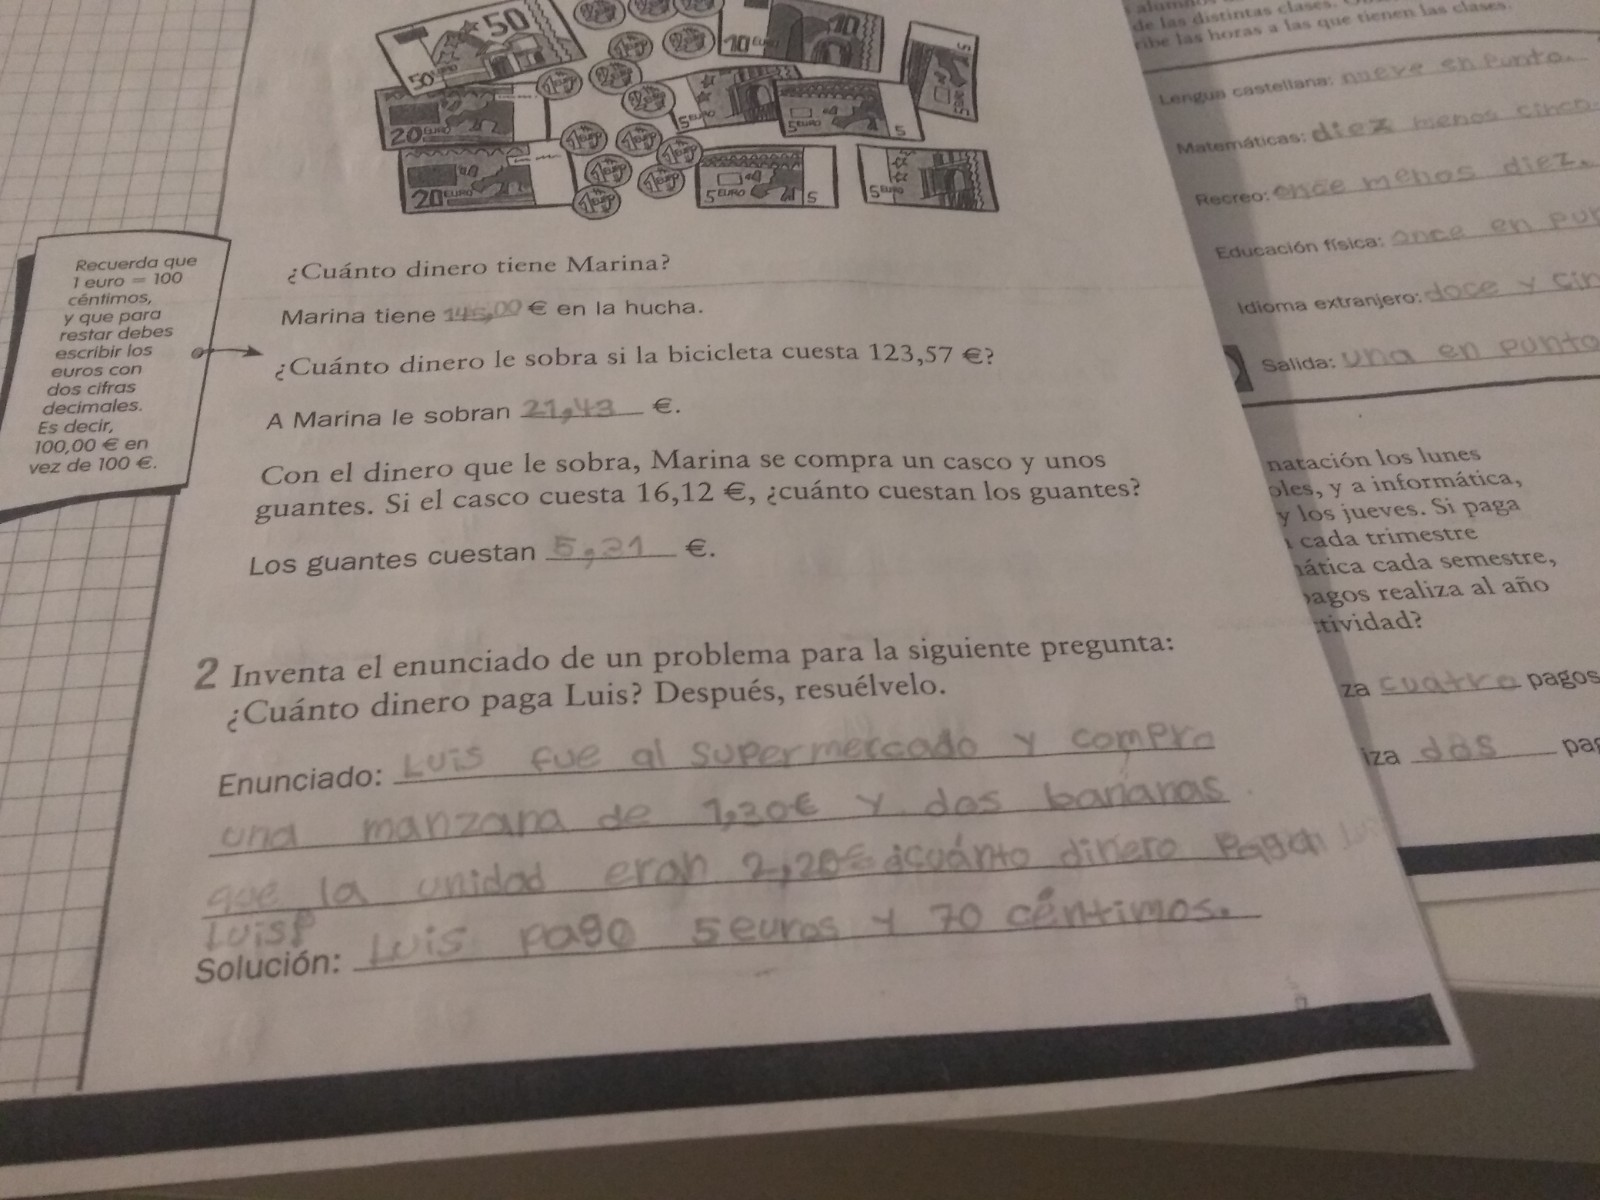 50
50 EURO
10 EURO
10
5 EURO
20 EURO
5 EURO
5 EURO
5
20 EURO
5 EURO
5
5 EURO
1 euro
Recuerda que
1 euro = 100
céntimos,
y que para
restar debes
escribir los
euros con
dos cifras
decimales.
Es decir,
100,00 € en
vez de 100 €.
¿Cuánto dinero tiene Marina?
Marina tiene 145,00 € en la hucha.
¿Cuánto dinero le sobra si la bicicleta cuesta 123,57 €?
A Marina le sobran 21,43 €.
Con el dinero que le sobra, Marina se compra un casco y unos
guantes. Si el casco cuesta 16,12 €, ¿cuánto cuestan los guantes?
Los guantes cuestan 5,31 €.
2 Inventa el enunciado de un problema para la siguiente pregunta:
¿Cuánto dinero paga Luis? Después, resuélvelo.
Enunciado: Luis fue al supermercado y compro
una manzana de 1,30€ y dos bananas
que la unidad eran 2,20€ ¿cuánto dinero Paga
Luis?
Solución: Luis pago 5 euros y 70 céntimos.
de las distintas clases.
ribe las horas a las que tienen las clases.
Lengua castellana: nueve en Punto.
Matemáticas: diez menos cinco.
Recreo: once menos diez.
Educación física: once en pun
Idioma extranjero: doce y cin
Salida: una en punto
natación los lunes
oles, y a informática,
y los jueves. Si paga
cada trimestre
ática cada semestre,
pagos realiza al año
tividad?
za cuatro pagos
iza dos pag